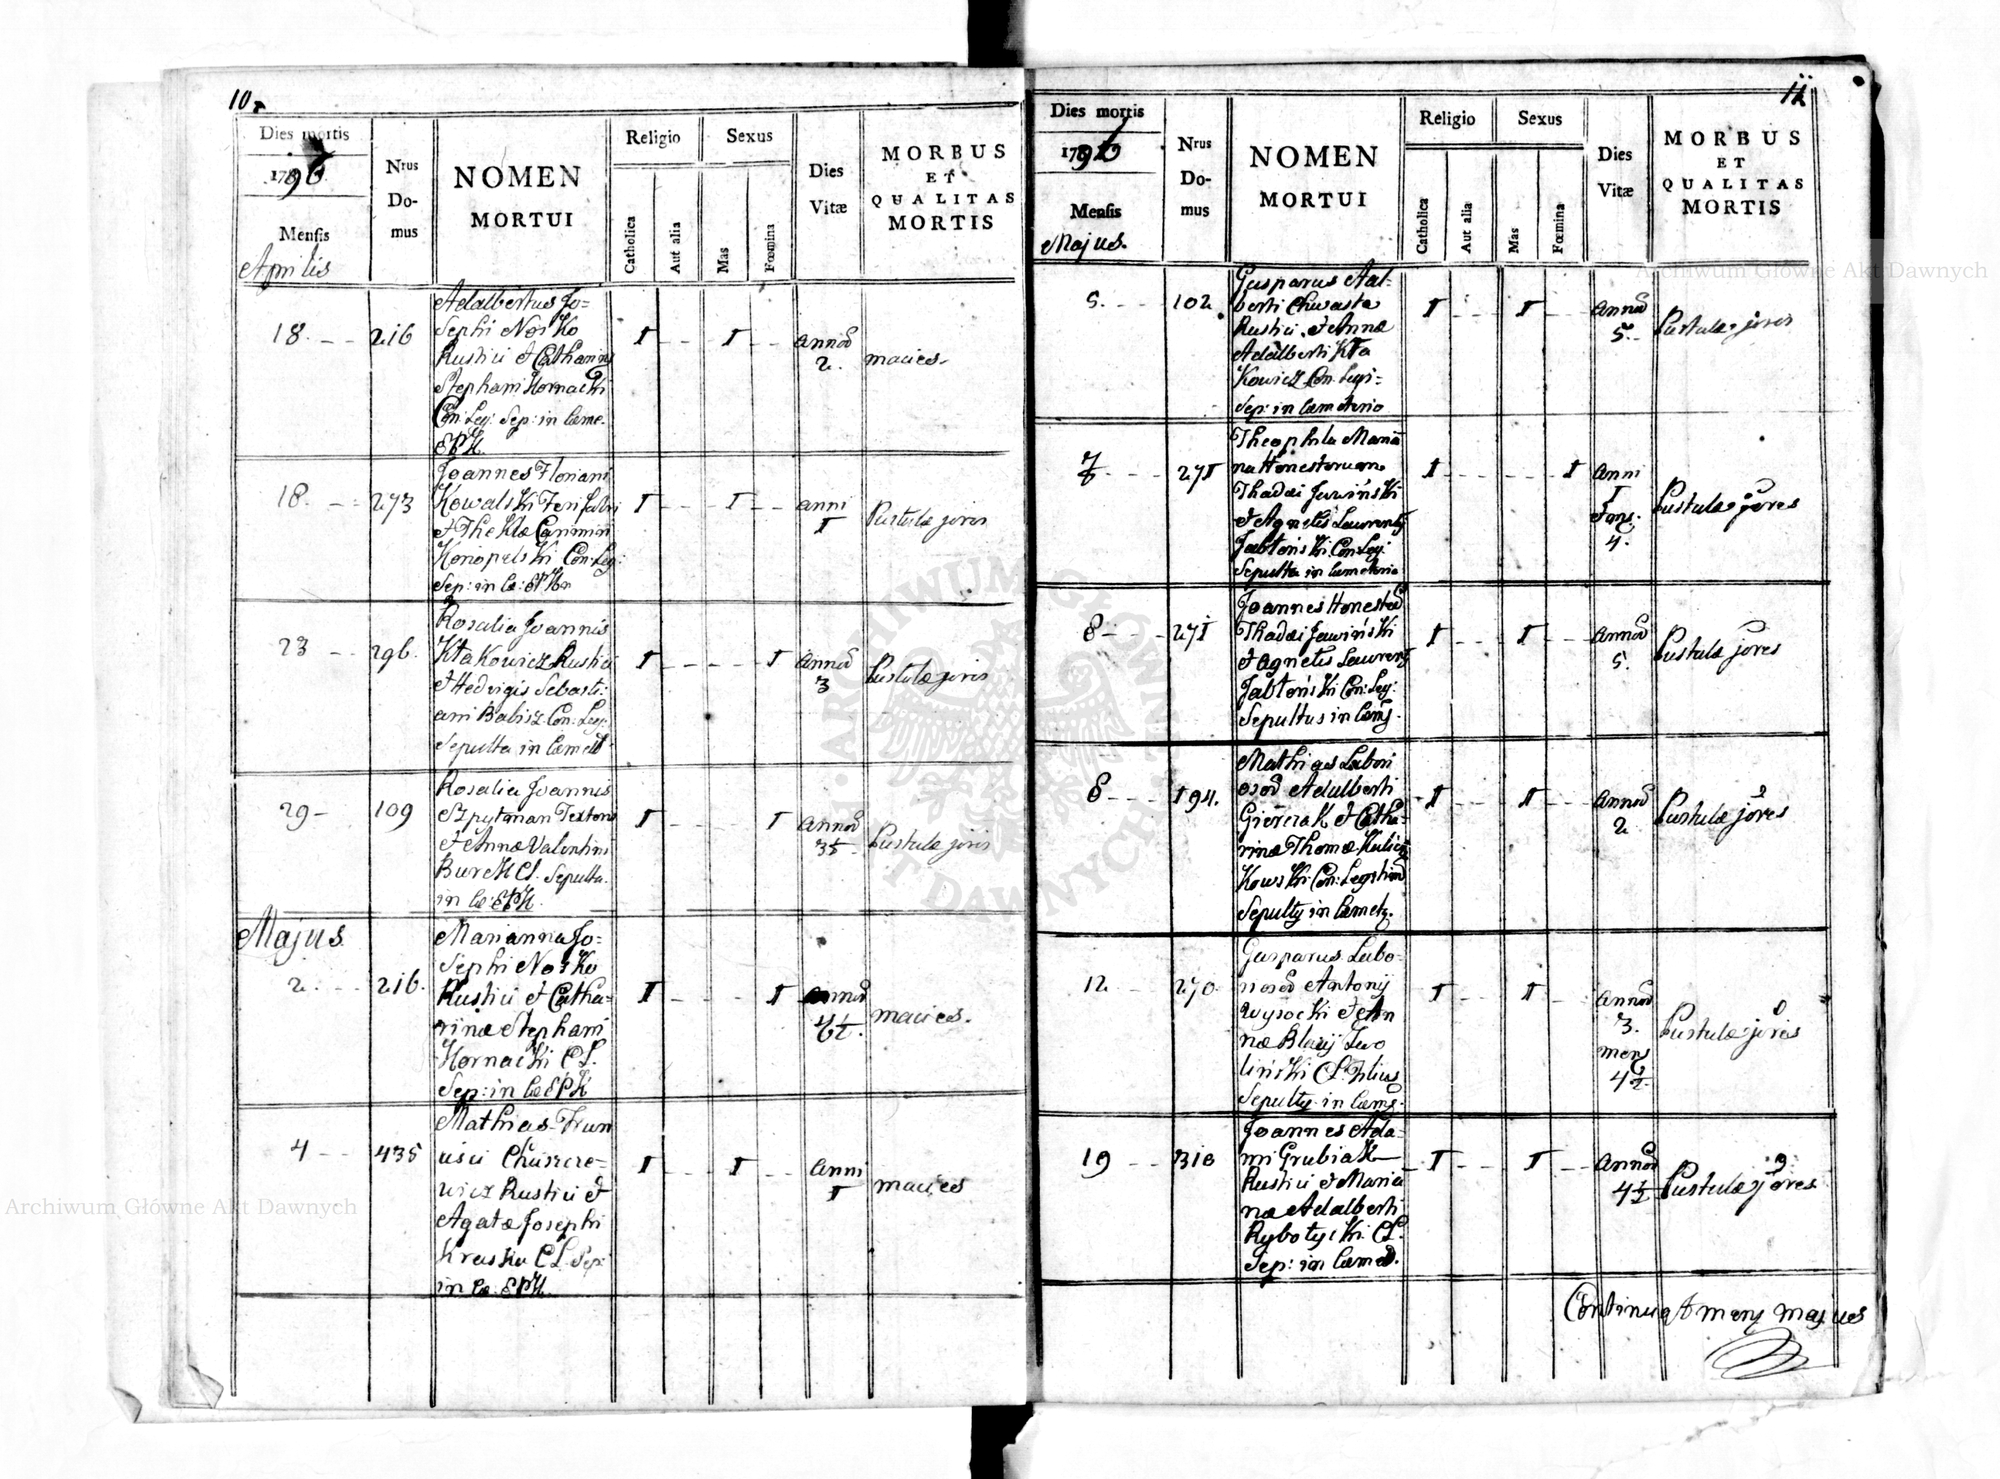 10.
Dies mortis
1796
Mensis
Aprilis
Nrus
Do-
mus
NOMEN
MORTUI
Religio
Catholica
Aut alia
Sexus
Mas
Fœmina
Dies
Vitæ
MORBUS
ET
QUALITAS
MORTIS
18.
216
Adalbertus Jo=
sephi Nosko
Rustici et Catharinæ
Stephani Hornacki
Con: Leg: Sep: in Cæme.
EPK
I
I
Annorū
2.
macies
18.
273
Joannes Floriani
Kowalski Ferri Fabri
et Theklæ Casimiri
Konopelski Con: Leg:
Sep: in Cæ: EPK
I
I
anni
I
Pustulæ joris
23
296.
Rosalia Joannis
Kłakowicz Rustici
et Hedvigis Sebasti:
ani Babisz Con: Leg:
Sepulta in Cæmet
I
I
Annorū
3
Pustulæ joris
29
109
Rosalia Joannis
Szpytman Textoris
et Annæ Valentini
CL. Sepulta
in Cæ: EPK.
I
I
Annorū
Pustulæ joris
Majus
2.
216.
Marianna Jo=
sephi Nosko
Rustici et Catha=
rinæ Stephani
Hornacki CL.
Sep: in Cæ EPK
I
I
Annorū
macies.
4
435
Mathias Fran
cisci
wicz Rustici et
Agatæ Josephi
Kraska CL. Sep:
in Cæ: EPK.
I
I
Anni
I
macies
11
Dies mortis
1796
Mensis
Majus.
Nrus
Do-
mus
NOMEN
MORTUI
Religio
Catholica
Aut alia
Sexus
Mas
Fœmina
Dies
Vitæ
MORBUS
ET
QUALITAS
MORTIS
5.
102
Gasparus Adal-
berti Chwasta
Rustici et Annæ
Adalberti Kła
kowicz Con. Legi=
Sep: in Cæmeterio
I
I
Annorū
5.
Pustulæ joris
7
271
Theophila Marian
na Honestorum
Thadæi Jawiński
et Agnetis Laurentij
Jabłoński Con: Leg:
Sepulta in Cæmeterio
I
I
Anni
I
4.
Pustulæ jores
8
271
Joannes Honestorū
Thadæi Jawiński
et Agnetis Laurentij
Jabłoński Con: Leg:
Sepultus in Cæmet.
I
I
Annorū
5.
Pustulæ jores
8
194.
Mathias Labori
osorū Adalberti
et Catha-
rinæ Thomæ
kowski Con: Legitim
Sepultus in Cæmet.
I
I
Annorū
2
Pustulæ jores
12
270
Gasparus Labo-
riosorū Antonij
Wysocki et An
næ Blasij Zwo
liński CL. Filius
Sepultus in Cæmet.
I
I
Annorū
3.
mens
4½
Pustulæ joris
19
310
Joannes Ada-
mi Grubiak
Rustici et Maria
næ Adalberti
Rybotycki CL.
Sep: in Cæmet.
I
I
Annorū
4½
Pustulæ jores
Continuat mens Majus
Archiwum Główne Akt Dawnych
Archiwum Główne Akt Dawnych
ARCHIWUM GŁÓWNE AKT DAWNYCH